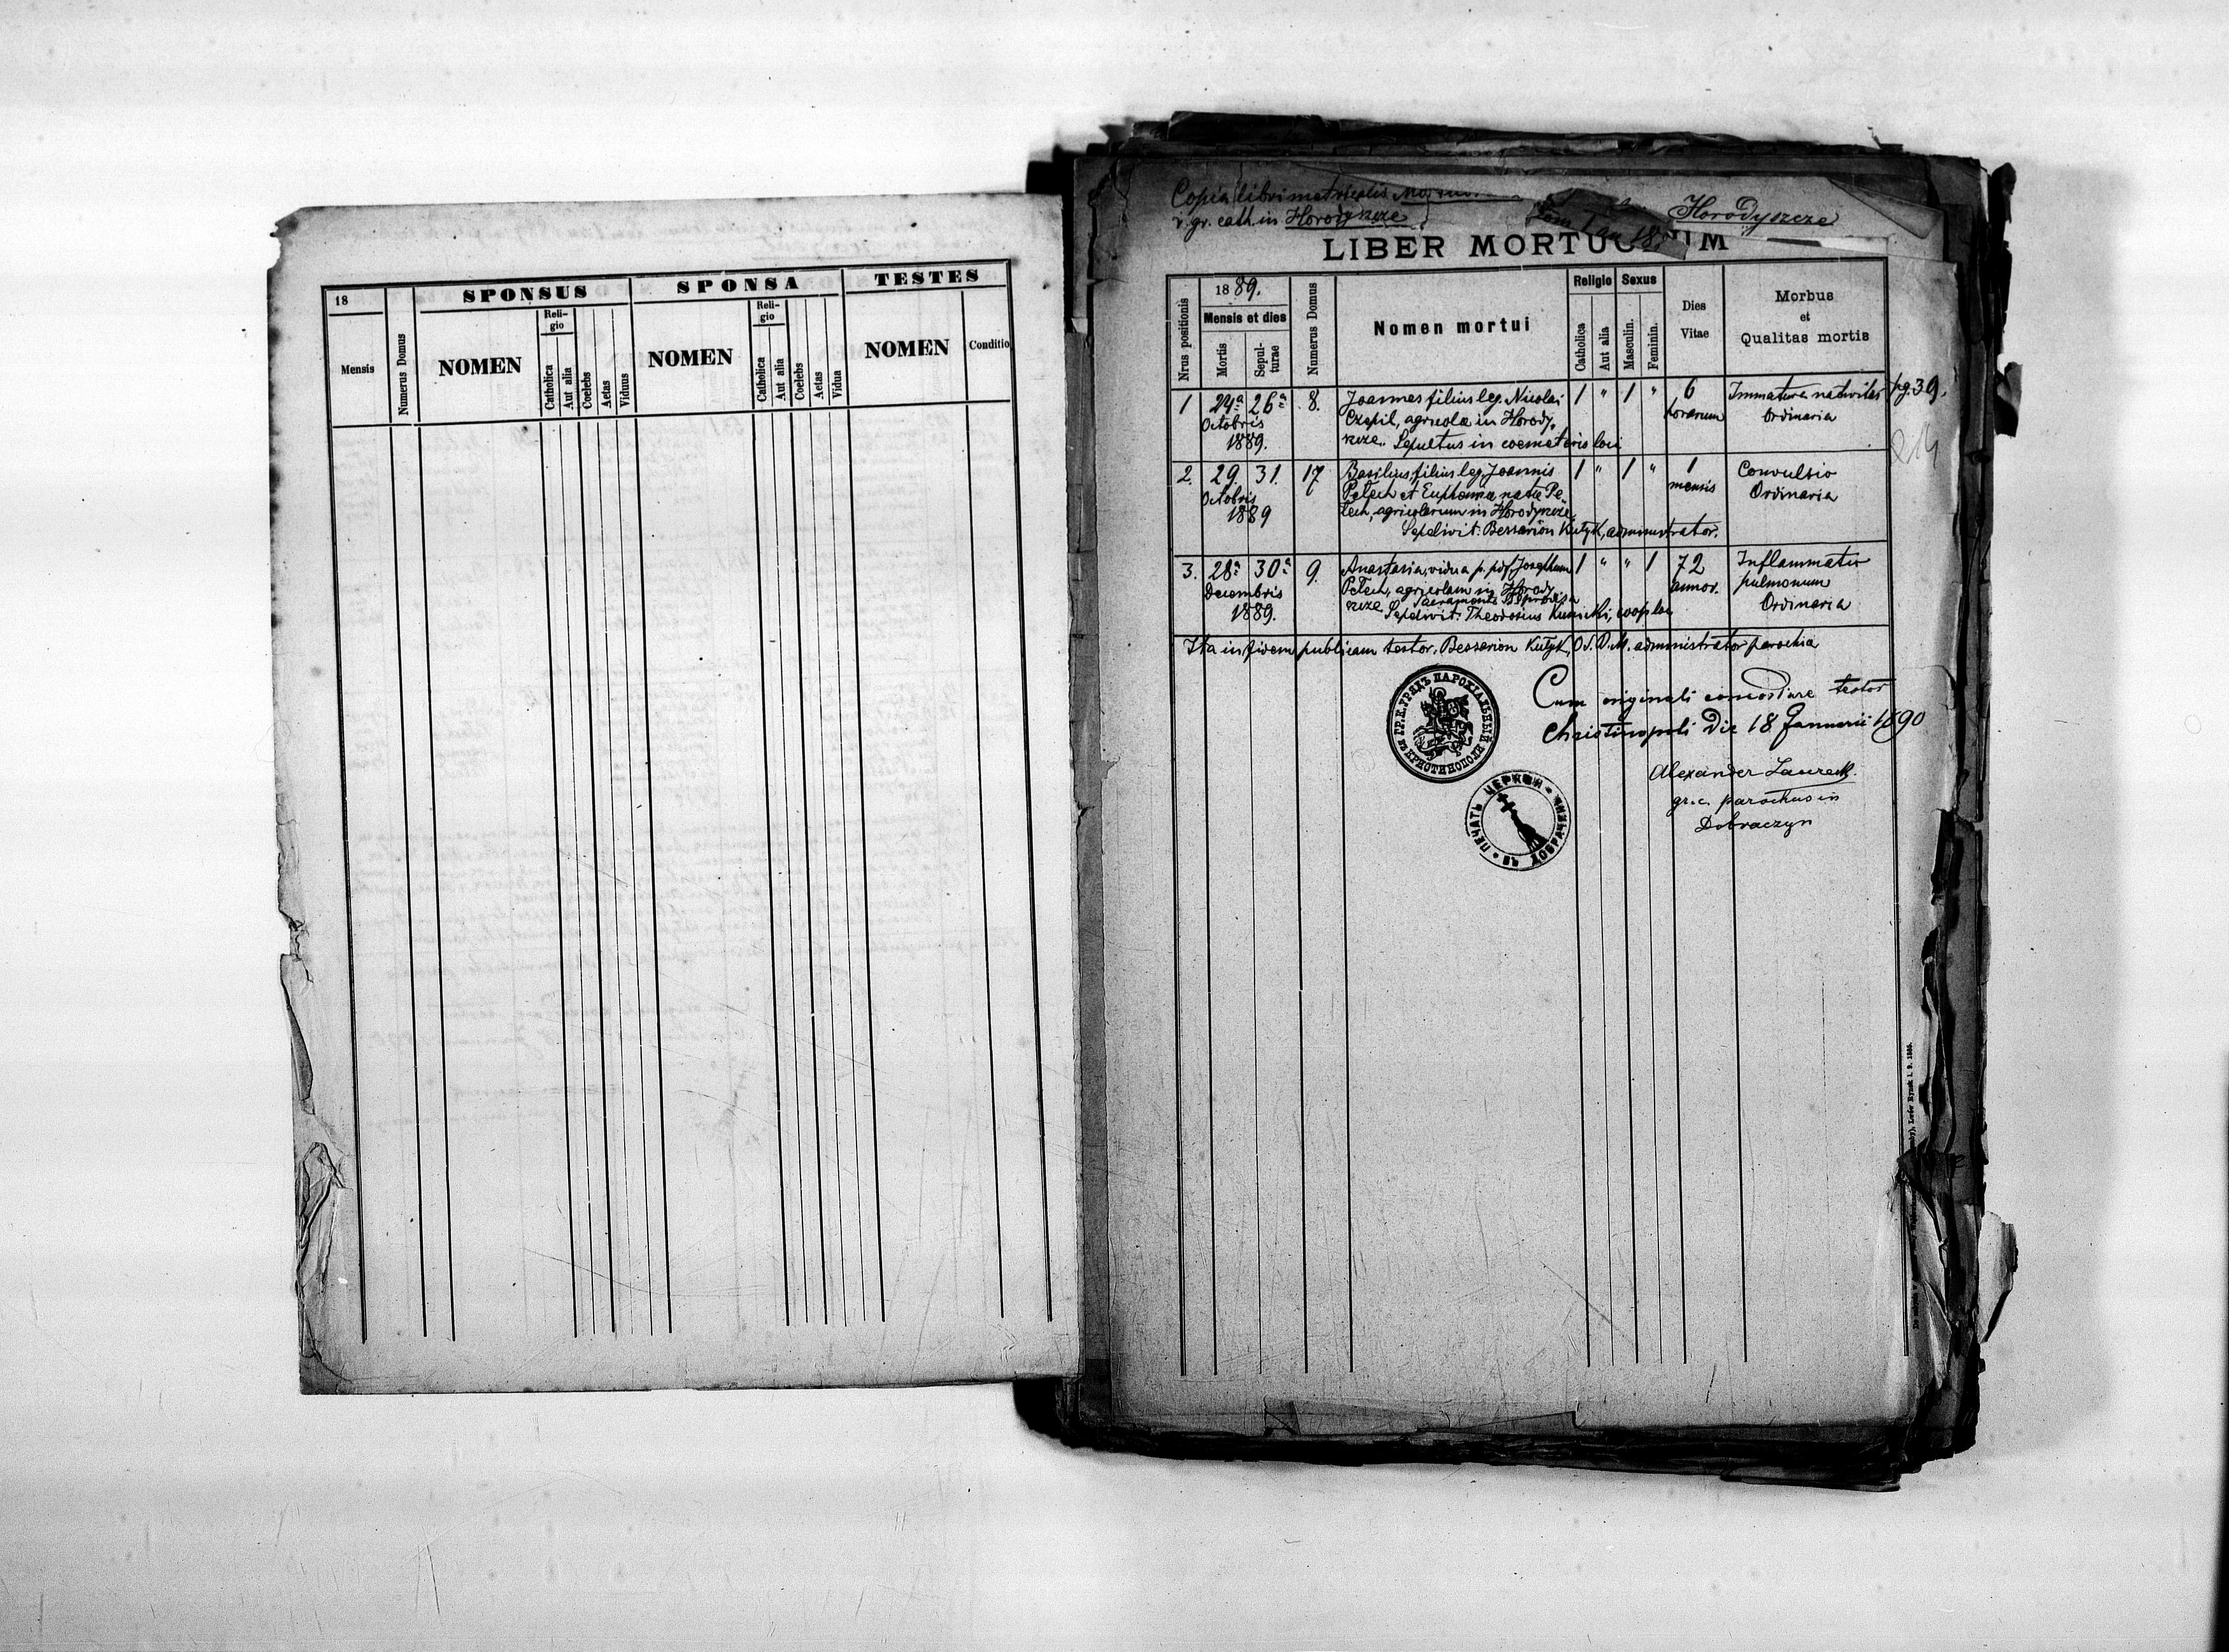 18
SPONSUS
SPONSA
TESTES
Mensis
Numerus Domus
NOMEN
Reli-
gio
Catholica
Aut alia
Coelebs
Aetas
Viduus
NOMEN
Reli-
gio
Catholica
Aut alia
Coelebs
Aetas
Vidua
NOMEN
Conditio
Copia libri metricalis
r. gr. cath. in Horodyszcze
Horodyszcze
LIBER MORTUORUM
Nrus positionis
1889.
Mensis et dies
Mortis
Sepul-
turae
Numerus Domus
Nomen mortui
Religio
Catholica
Aut alia
Sexus
Masculin.
Feminin.
Dies
Vitae
Morbus
et
Qualitas mortis
1 24ª 26ª 8. Joannes filius leg. Nicolai 1 " 1 " 6 Immatura nativitas pg. 39.
Octobris Czepil, agricolae in Horody- horarum Ordinaria
1889. szcze. Sepultus in coemeterio loci
214
2. 29. 31. 17 Basilius, filius leg. Joannis 1 " 1 " 1 Convulsio
Octobris Pelech et Euphemia natae Pe- mensis Ordinaria
1889 lech, agricolarum in Horodyszcze.
Sepelivit: Bessarion Kutyk, administrator.
3. 28ª 30ª 9. Anastasia, vidua p. def. Josephum 1 " " 1 72 Inflammatio
Decembris Pelech, agricolam in Horody- annor. pulmonum
szcze. Sacramentis
1889. Sepelivit: Theodosius Kunicki, coop. loc. Ordinaria
Ita in fidem publicam testor. Bessarion Kutyk, O. S. B. M. administrator parochia
Cum originali concordare testor
Christinopoli Die 18 Januarii 1890
Alexander
gr. c. parochus in
Dobraczyn
ГР. К. УРЯДЪ ПАРОХІАЛЬНЫЙ въ КРИСТИНОПОЛИ
ПЕЧАТЬ ЦЕРКВИ въ ДОБРАЧИНѢ
Lwów Rynek l. 9. 1885.